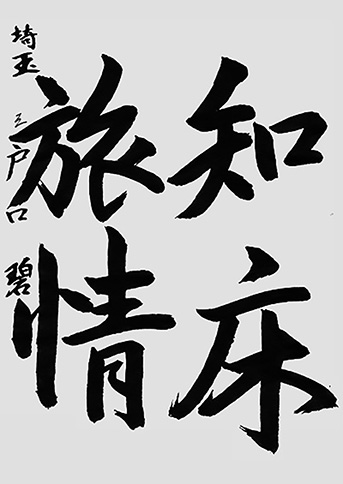 知床
旅情
埼玉 三戸口 碧